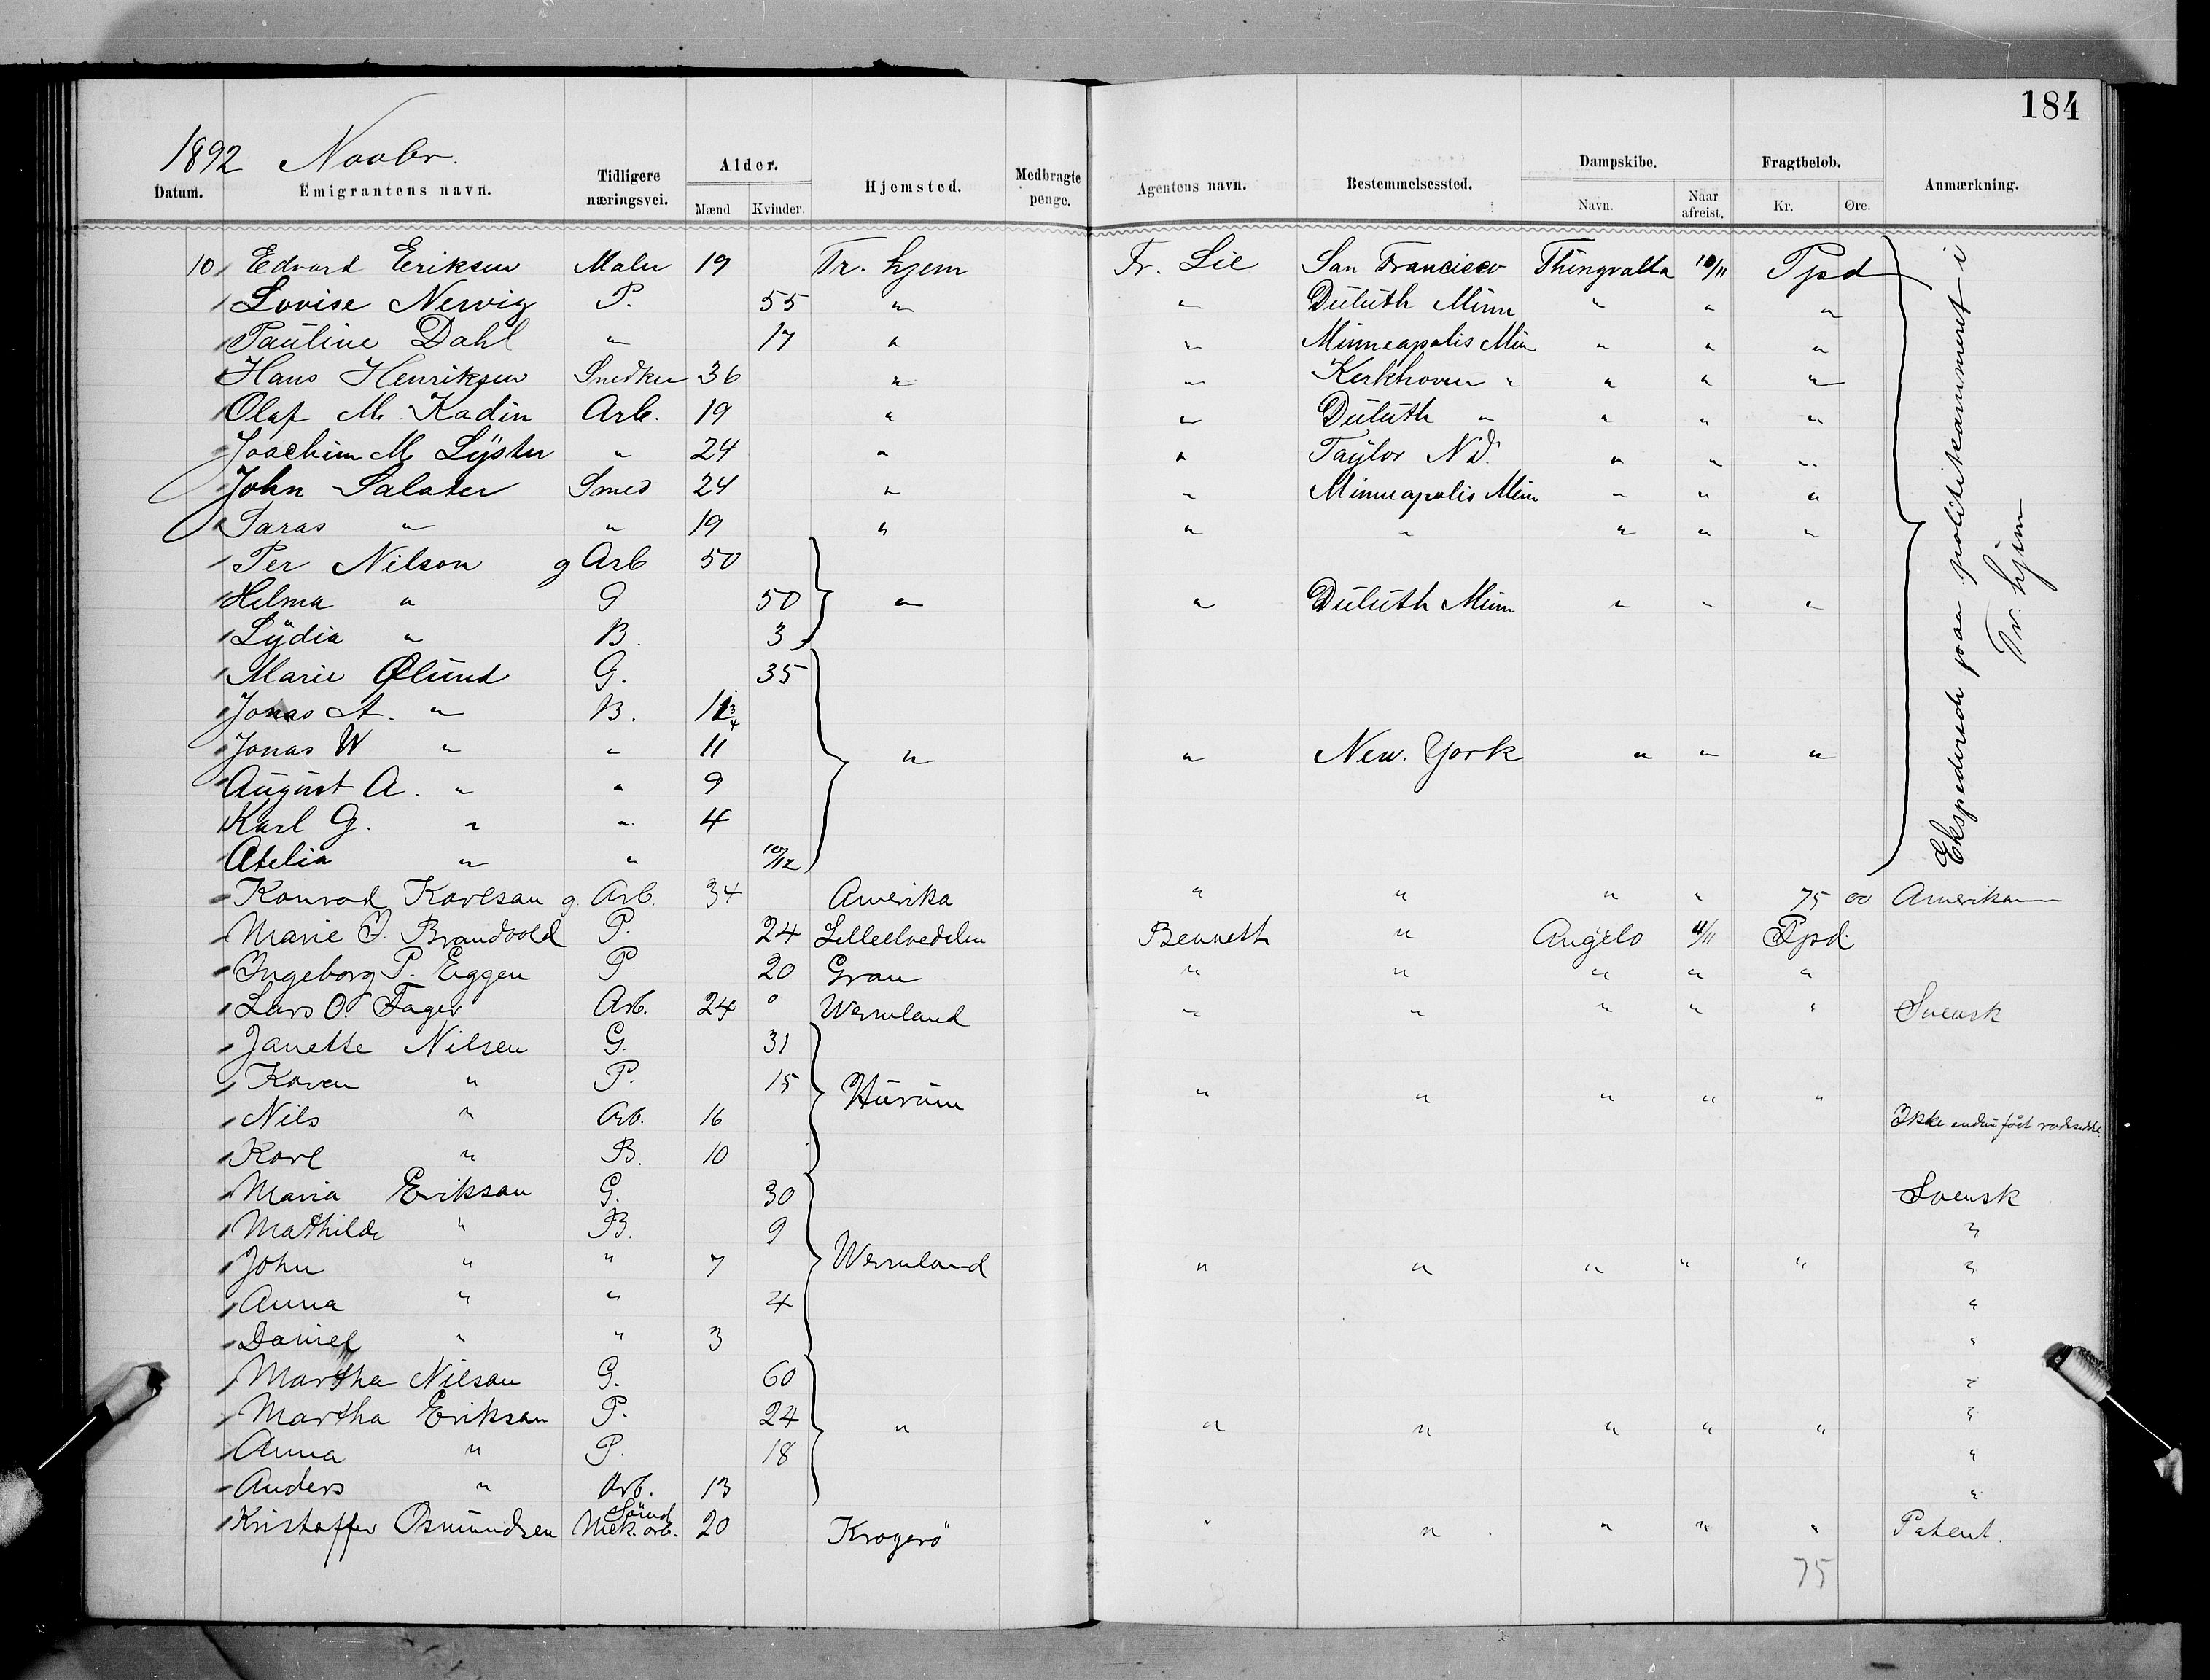 184
1892 Novbr.
Datum. Emigrantens navn. Tidligere næringsvei. Alder. Mænd Kvinder. Hjemsted. Medbragte penge. Agentens navn. Bestemmelsessted. Dampskibe. Navn. Naar afreist. Fragtbeløb. Kr. Øre. Anmærkning.
10 Edvard Eriksen Maler 19 Tr. hjem Fr. Lie San Francisco Thingvalla 10/11 Ppd
Lovise Nervig P. 55 " " Duluth Minn " " "
Pauline Dahl " 17 " " Minneapolis Min " " "
Hans Henriksen Snedker 36 " " Kerkhoven " " " "
Olaf M. Kadin Arb. 19 " " Duluth " " " "
Joachim M Lyster " 24 " " Taylor N.D. " " "
John Salater Smed 24 " " Minneapolis Minn " " "
Saras " " 19 " " " " " "
Per Nilson g Arb 50
Hilma " G 50 " " Duluth Minn " " "
Lydia " B. 3
Marie Ølund G. 35
Jonas A. " B. 11 3/4
Jonas W " " 11 " " New. York " " "
August A. " " 9
Karl G. " " 4
Atelia " " 10/12
Ekspederede paa politikammeret i Tr. hjem
Konrad Karlsan g. Arb. 34 Amerika " " " " 75 00 Amerikan
Marie O. Brandvold P. 24 Lilleelvedalen Bennett " Angelo 11/11 Ppd.
Ingeborg P. Eggen P. 20 Gran " " " " "
Lars O. Fager Arb. 24 Wermland " " " " " Svensk
Janette Nilsen G. 31
Karen " P. 15 Hurum " " " " "
Nils " Arb. 16 Ikke endnu fået rødseddel.
Karl " B. 10
Maria Eriksan G. 30 Svensk
Mathilde " B. 9 "
John " " 7 Wermland " " " " " "
Anna " " 4 "
Daniel " " 3 "
Martha Nilsan G. 60 "
Martha Eriksan P. 24 " " " " " " "
Anna " P. 18 "
Anders " Arb. 13 "
Kristoffer Osmundsen Mek. arb. 20 Kragerö " " " " " Patent.
75